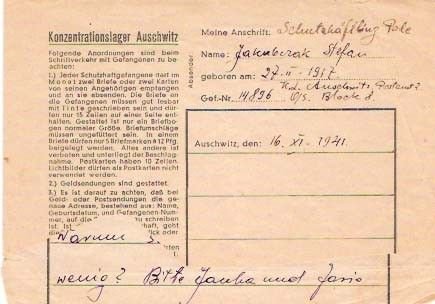 Konzentrationslager Auschwitz
Folgende Anordnungen sind beim
Schriftverkehr mit Gefangenen zu be-
achten:
1.) Jeder Schutzhaftgefangene darf im
Monat zwei Briefe oder zwei Karten
von seinen Angehörigen empfangen
und an sie absenden. Die Briefe an
die Gefangenen müssen gut lesbar
mit Tinte geschrieben sein und
dürfen nur 15 Zeilen auf einer Seite ent-
halten. Gestattet ist nur ein Briefbo-
gen normaler Größe. Briefumschläge
müssen ungefüttert sein. In einem
Briefe dürfen nur 5 Briefmarken à 12 Pfg.
beigelegt werden. Alles andere ist
verboten und unterliegt der Beschlag-
nahme. Postkarten haben 10 Zeilen.
Lichtbilder dürfen als Postkarten nicht
verwendet werden.
2.) Geldsendungen sind gestattet.
3.) Es ist darauf zu achten, daß bei
Geld- oder Postsendungen die ge-
naue Adresse, bestehend aus: Name,
Geburtsdatum, und Gefangenen-Num-
mer, auf die zu schreiben
ist. Ist geht
ück oder
Warum
wenig? Bitte Janka und
Absender:
Meine Anschrift: Schutzhäftling Pole
Name: Jakubczak Stefan
geboren am: 27. II - 1917.
Kd. Auschwitz, Postamt 2
Gef.-Nr. 14896 O/S. Block 8
Auschwitz, den 16. XI. 1941.